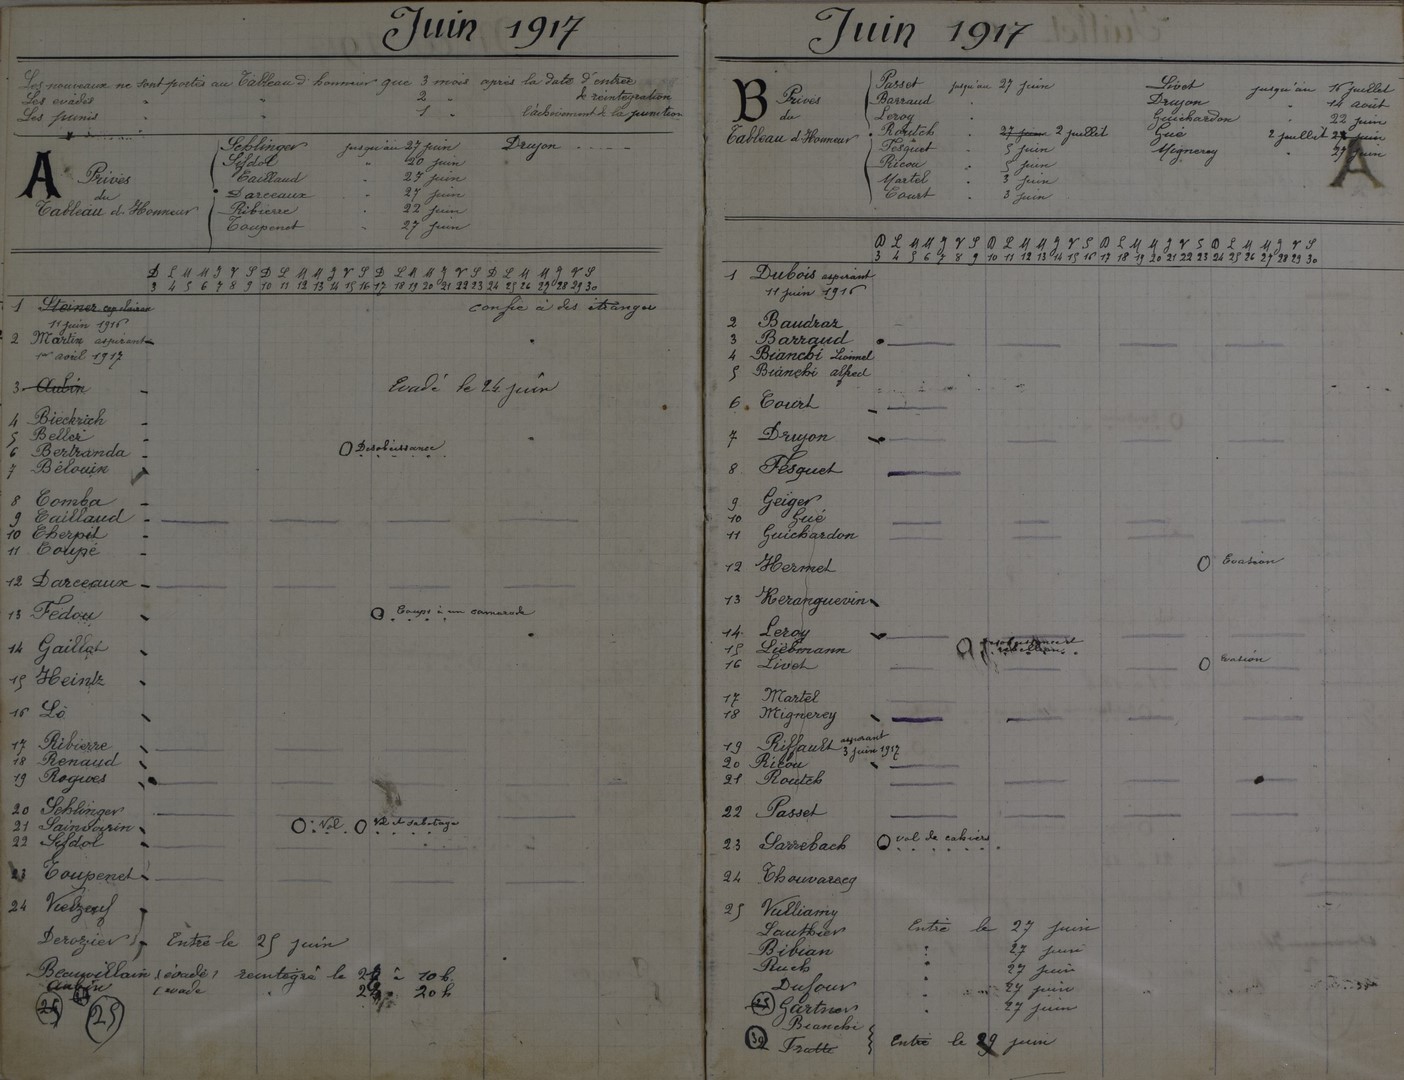 Juin 1917
Les nouveaux ne sont portés au Tableau d'honneur que 3 mois après la date d'entrée
Les évadés " " 2 " de réintégration
Les punis " " 1 " l'achèvement de la punition
A Privés du Tableau d'Honneur
Schlinger jusqu'au 27 juin Drujon
Sifdol " 20 juin
Caillaud 27 juin
Darceaux " 27 juin
Ribierre " 22 juin
Toupenet " 27 juin
D L M M J V S D L M M J V S D L M M J V S D L M M J V S
3 4 5 6 7 8 9 10 11 12 13 14 15 16 17 18 19 20 21 22 23 24 25 26 27 28 29 30
1 Steiner capitaine confié à des étranger
11 juin 1916
2 Martin aspirant
1er avril 1917
3 Aubin Evadé le 24 juin
4 Bieckrich
5 Beller
6 Bertranda Désobéissance
7 Bélouin
8 Comba
9 Caillaud
10 Cherpit
11 Coupé
12 Darceaux
13 Fédou Coups à un camarade
14 Gaillat
15 Heintz
16 Lô
17 Ribierre
18 Renaud
19 Rogues
20 Schlinger
21 Vol Vol et sabotage
22 Sifdol
23 Toupenet
24
Derozier Entré le 25 juin
Beauvillain (évadé) réintégré le à 10 h.
Aubin (évadé " 20 h
25
Juin 1917
B Privés du Tableau d'Honneur
Passet jusqu'au 27 juin Livet jusqu'au 16 juillet
Barraud " Drujon " 14 août
Leroy " Guichardon " 22 juin
Routch " 27 juin 2 juillet Gué 2 juillet juin
Fesquet " 5 juin Mignerey " 27 juin
Ricou " 5 juin
Martel " 3 juin
Court " 3 juin
A
D L M M J V S D L M M J V S D L M M J V S D L M M J V S
3 4 5 6 7 8 9 10 11 12 13 14 15 16 17 18 19 20 21 22 23 24 25 26 27 28 29 30
1 Dubois aspirant
11 juin 1916
2 Baudraz
3 Barraud
4 Bianchi Lionnel
5 Bianchi alfred
6 Court
7 Drujon
8 Fesquet
9 Geiger
10 Gué
11 Guichardon
12 Hermet Evasion
13 Keranguevin
14 Leroy
15 Liebmann
16 Livet Evasion
17 Martel
18 Mignerey
19 Riffault aspirant
3 juin 1917
20 Ricou
21 Routch
22 Passet
23 Sarrebach vol de cahiers
24 Thouvarecq
25 Vulliamy
Lauthier Entré le 27 juin
Bibian " 27 juin
Ruch " 27 juin
Dufour " 27 juin
Gartner " 27 juin
Bianchi
Fratte Entré le 29 juin